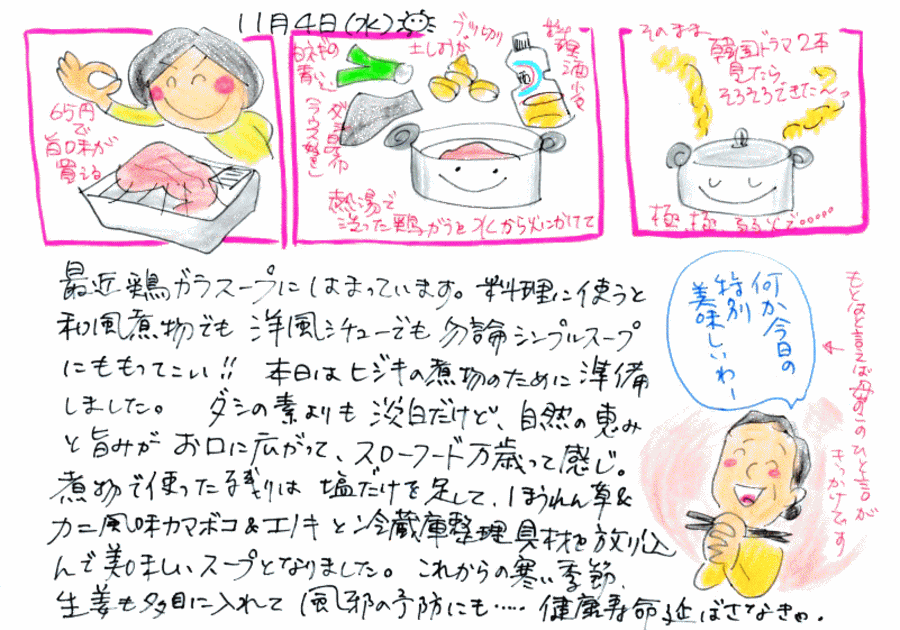 11月4日(水)
65円で
旨味が
買える
白ネギの
青いと
ブツ切り
土しょうが
料理酒少々
ダシ昆布
熱湯で
洗った鶏ガラを水から火にかけて
そのまま
韓国ドラマ2本
見たら、
そろそろできたんっ
極、極、弱火で……
最近鶏ガラスープにはまっています。料理に使うと
和風煮物でも洋風シチューでも勿論シンプルスープ
にももってこい!! 本日はヒジキの煮物のために準備
しました。 ダシの素よりも淡白だけど、自然の恵み
と旨みがお口に広がって、スローフード万歳って感じ。
煮物で使った残りは塩だけを足して、ほうれん草&
カニ風味カマボコ&エノキと冷蔵庫整理具材を放り込
んで美味しいスープとなりました。これからの寒い季節、
生姜も多目に入れて風邪の予防にも…‥健康寿命延ばさなきゃ。
何か今日の
特別
美味しいわー
もとはと言えば母のこのひと言が
きっかけです